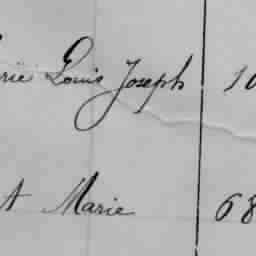 rie Louis Joseph 10
t Marie 68